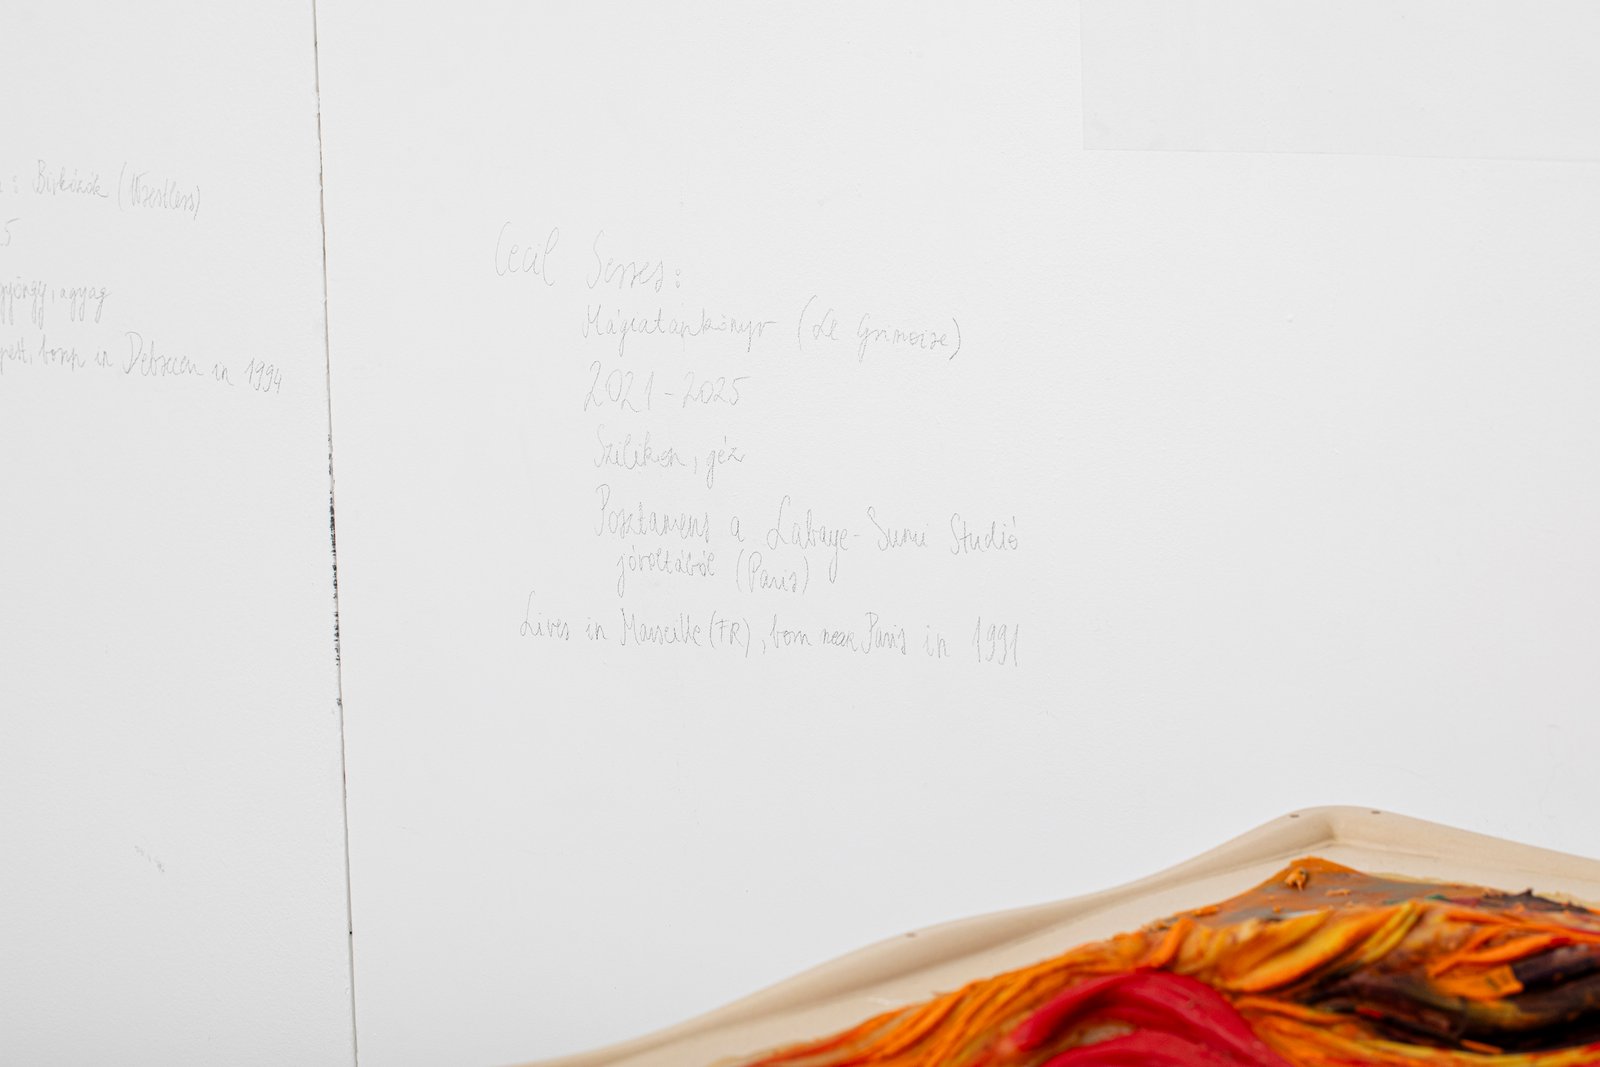 : Birkózók (Wrestlers)
5
gyöngy, agyag
pest, born in Debrecen in 1994
Cecil Serres:
Mágiatankönyv (Le Grimoire)
2021-2025
Szilikon, géz
Posztamens a Labaye-Sumi Studió
jóvoltából (Paris)
Lives in Marseille (FR), born near Paris in 1991